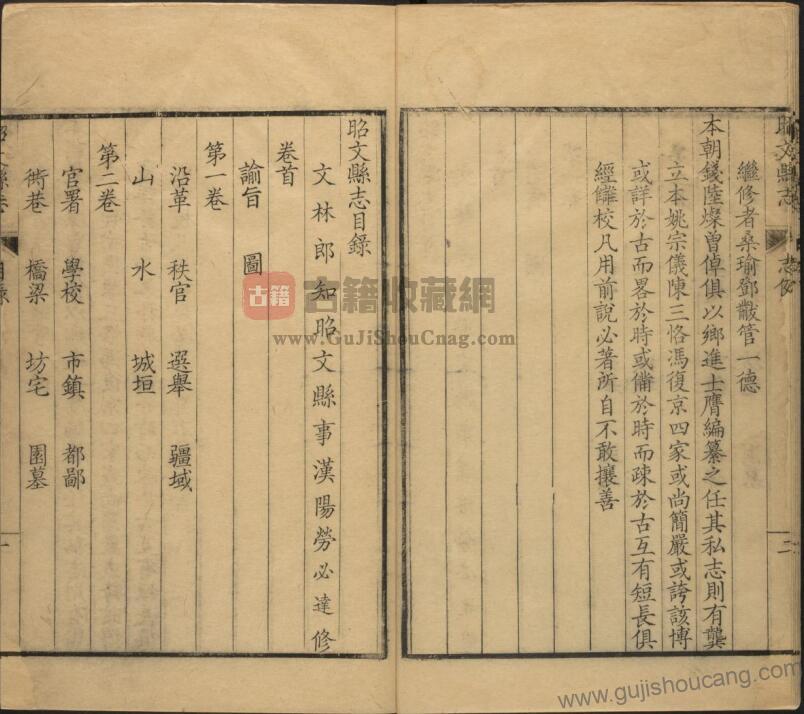 昭文縣志 志例 二
繼修者桑瑜鄧韍管一德
本朝錢陸燦曽倬俱以鄉進士膺編纂之任其私志則有龔
立本姚宗儀陳三恪馮復京四家或尚簡嚴或誇該博
或詳於古而畧於時或備於時而疎於古互有短長俱
經讎校凡用前說必著所自不敢攘善
昭文縣志目錄
文林郎知昭文縣事漢陽勞必達修
卷首
諭旨 圖
第一卷
沿革 秩官 選舉 疆域
山 水 城垣
第二卷
官署 學校 市鎮 都鄙
衖巷 橋梁 坊宅 園墓
昭文縣志 目錄 一
古籍
古籍收藏網
www.GuJiShouCnag.com
www.gujishoucang.com